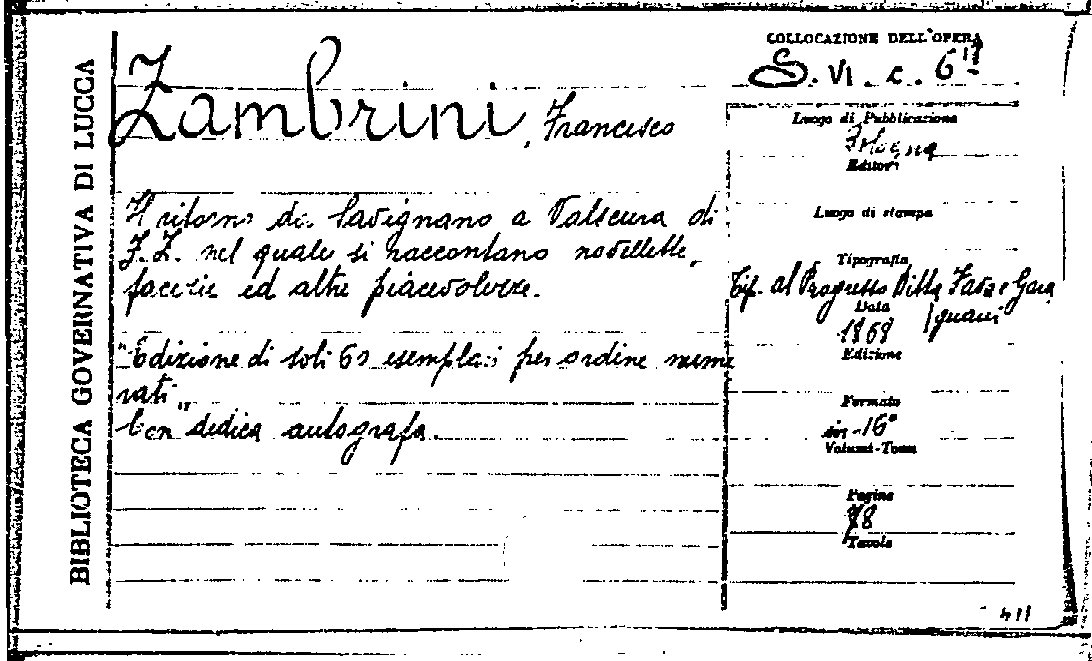 BIBLIOTECA GOVERNATIVA DI LUCCA
COLLOCAZIONE DELL'OPERA
S. VI. c. 6
Zambrini, Francesco
Il ritorno da Savignano a Valscura di
F. Z. nel quale si raccontano novellette,
facezie ed altre piacevolezze.
"Edizione di soli 60 esemplari per ordine nume
rati"
Con dedica autografa.
Luogo di Pubblicazione
Bologna
Editori
Luogo di stampa
Tipografia
Tip. al Progresso Ditta Fava e Gara
gnani
Data
1868
Edizione
Formato
in-16°
Volumi-Tomi
Pagine
78
Tavole
411